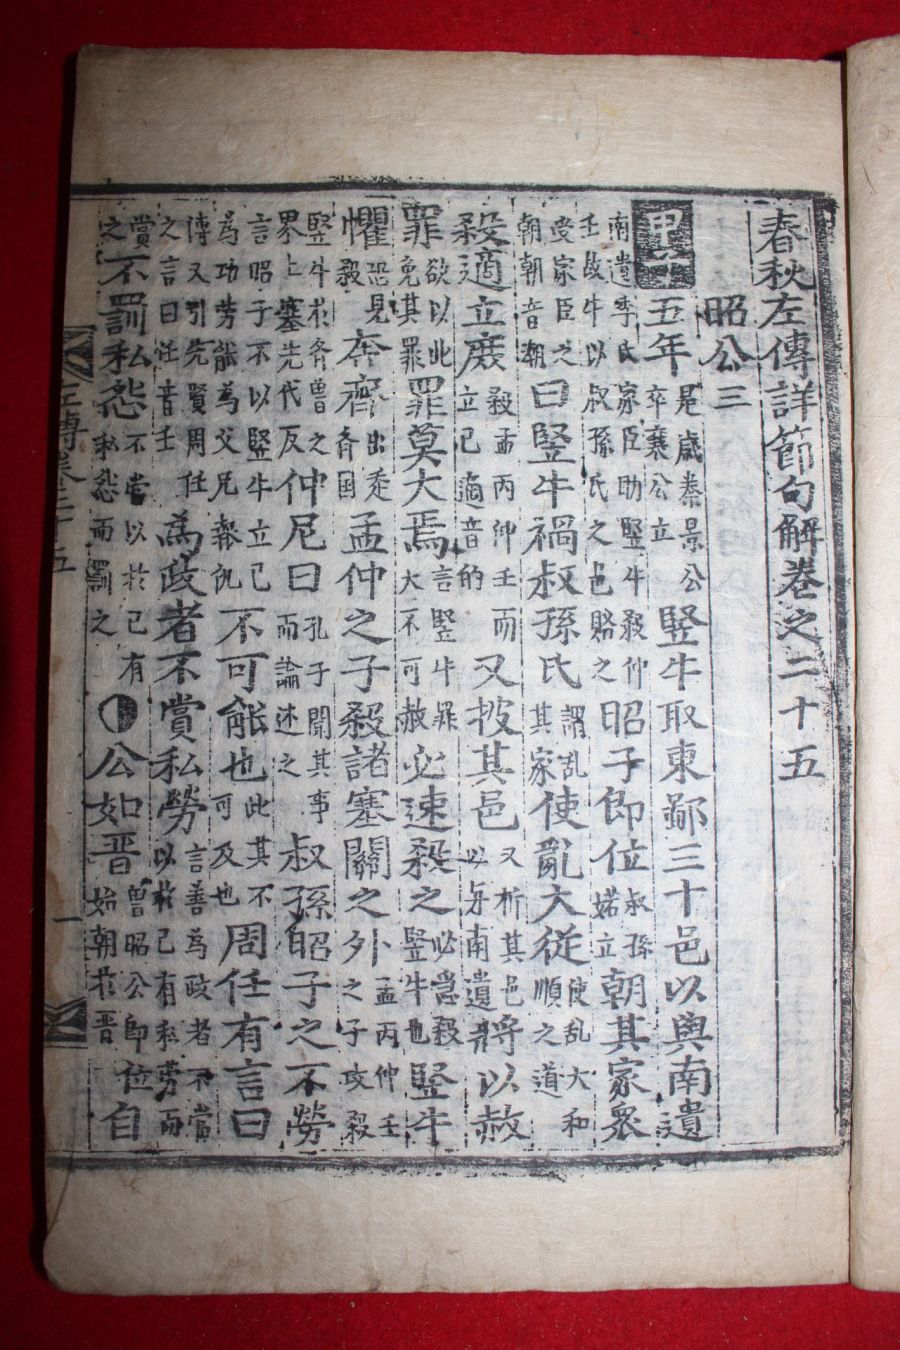 春秋左傳詳節句解卷之二十五
昭公三
甲子五年是歲秦景公卒襄公立竪牛取東鄙三十邑以與南遺
南遺季氏家臣助竪牛殺仲壬故牛以叔孫氏之邑賂之昭子即位叔孫婼立朝其家衆
受家臣之朝朝音朝曰竪牛禍叔孫氏謂亂其家使亂大從使亂大和順之道
殺適立庶殺孟丙仲壬而立己適音的又披其邑又析其邑以与南遺將以赦
罪欲以此免其罪罪莫大焉言竪牛罪大不可赦必速殺之必急殺竪牛也竪牛
懼恐見殺奔齊出奔齊国孟仲之子殺諸塞關之外孟丙仲壬之子攻殺
竪牛於齊魯之界上塞先代反仲尼曰孔子聞其事而論述之叔孫昭子之不勞
言昭子不以竪牛立己為功勞能為父兄報仇不可能也此其不可及也周任有言曰
傳又引先賢周任之言曰任音壬為政者不賞私勞言善為政者不當以於己有私勞而
賞之不罰私怨不當以於己有私怨而罰之公如晋魯昭公即位始朝於晋自
左傳卷二十五 一